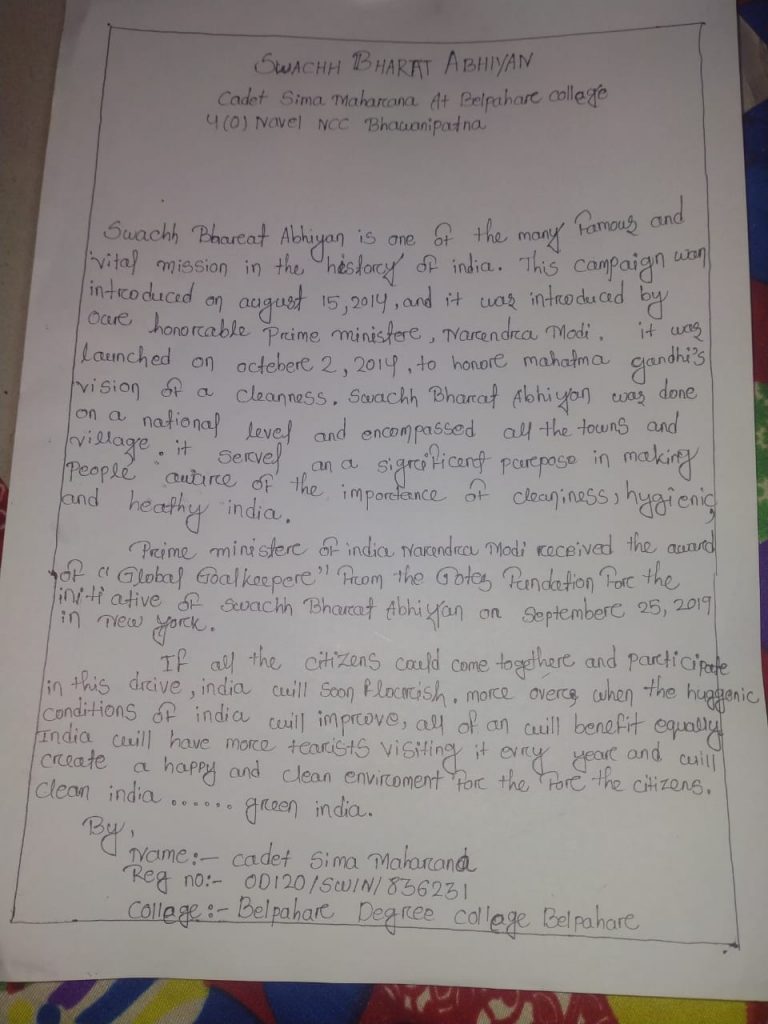 SWACHH BHARAT ABHIYAN
Cadet Sima Maharcana At Belpahare college
4(0) Navel NCC Bhawanipatna
Swachh Bhareat Abhiyan is one of the many Famous and
vital mission in the historcy of india. This campaign wan
introduced on august 15, 2014, and it was introduced by
oure honorcable Prcime ministere, Narcendrca Modi. it was
launched on octobere 2, 2014, to honore mahatma gandhi's
vision of a cleanness. Swachh Bharcat Abhiyan was done
on a national level and encompassed all the towns and
village. it servef an a significent purepose in making
People awarce of the importance of cleaniness, hygienic,
and heathy india.
Prcime ministere of india Narcendrca Modi received the award
of "Global Goalkeepere" From the Gates Fundation Forc the
initiative of Swachh Bharcat Abhiyan on Septembere 25, 2019
in New Yorck.
If all the citizens could come togethere and parcticipate
in this drcive, india will soon flourcish. morce overcs when the huggenic
conditions of india will improve, all of an will benefit equally
India will have morce tourists visiting it evry yearc and will
create a happy and clean envircoment Forc the Forc the citizens.
Clean india ...... green india.
By,
Name:- cadet Sima Maharcana
Reg no:- OD120/SWIN/836231
College:- Belpahare Degree college Belpahare